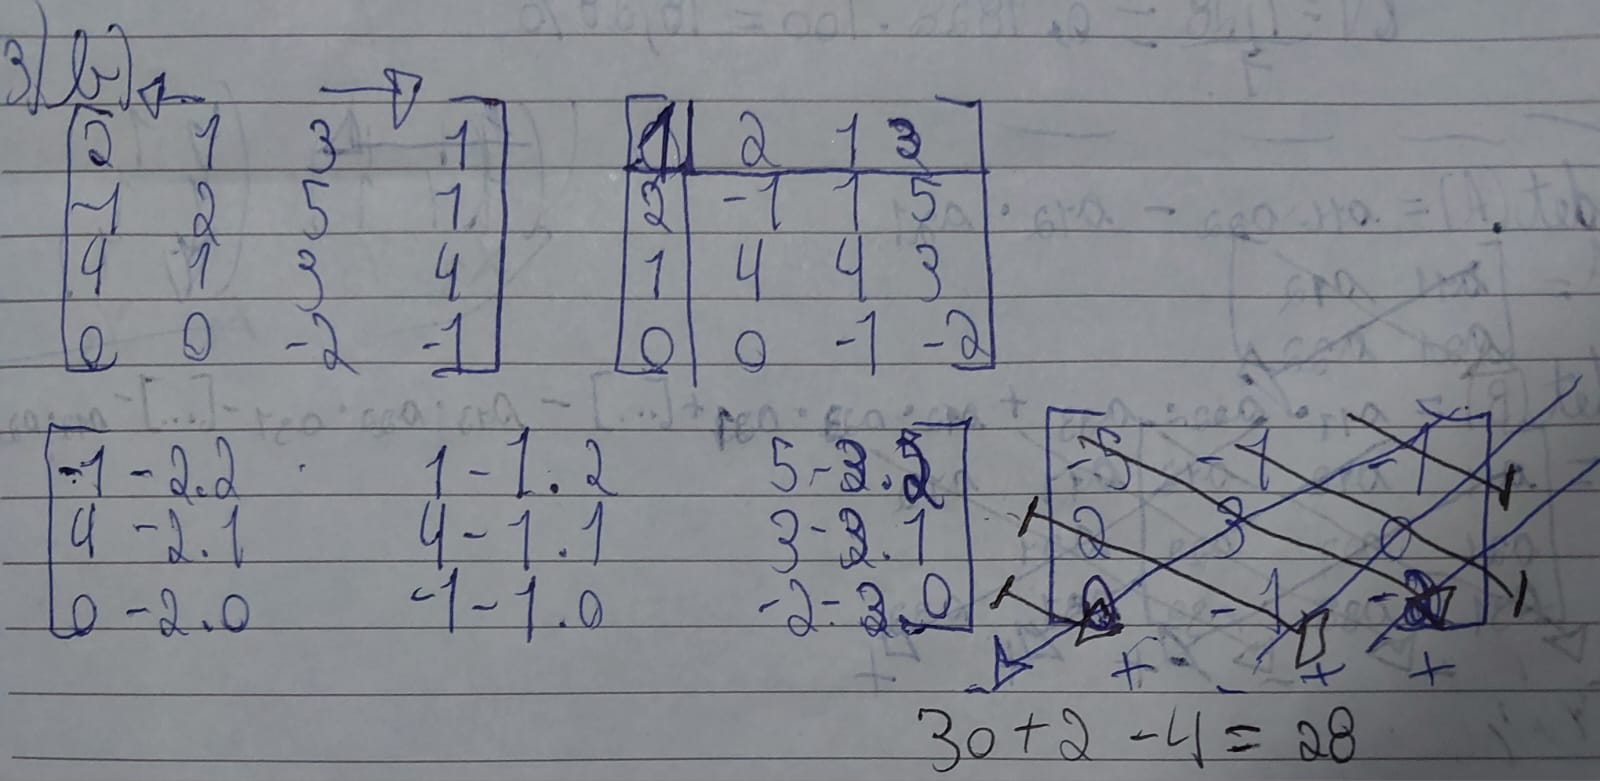 3) b)
2 1 3 1
-1 2 5 1
4 1 3 4
0 0 -2 -1
1 2 1 3
2 -1 1 5
1 4 4 3
0 0 -1 -2
-1-2.2 1-1.2 5-3.2
4-2.1 4-1.1 3-3.1
0-2.0 -1-1.0 -2-3.0
-5 -1 -1
2 3 0
0 -1 -2
- + - - + +
30+2-4=28